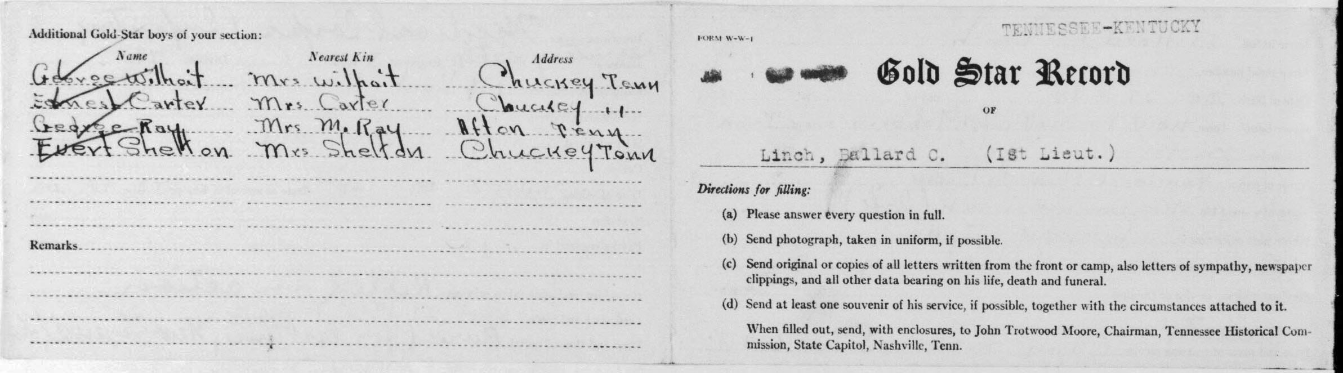 Additional Gold Star boys of your section:
Name Nearest Kin Address
George Wilhoit Mrs Wilhoit Chuckey Tenn
Ernest Carter Mrs. Carter Chuckey "
George Ray Mrs M. Ray Afton Tenn
Evert Shelton Mrs Shelton Chuckey Tenn
Remarks
TENNESSEE-KENTUCKY
FORM W-W-1
Gold Star Record
OF
Linch, Ballard C. (Ist Lieut.)
Directions for filling:
(a) Please answer every question in full.
(b) Send photograph, taken in uniform, if possible.
(c) Send original or copies of all letters written from the front or camp, also letters of sympathy, newspaper
clippings, and all other data bearing on his life, death and funeral.
(d) Send at least one souvenir of his service, if possible, together with the circumstances attached to it.
When filled out, send, with enclosures, to John Trotwood Moore, Chairman, Tennessee Historical Com-
mission, State Capitol, Nashville, Tenn.